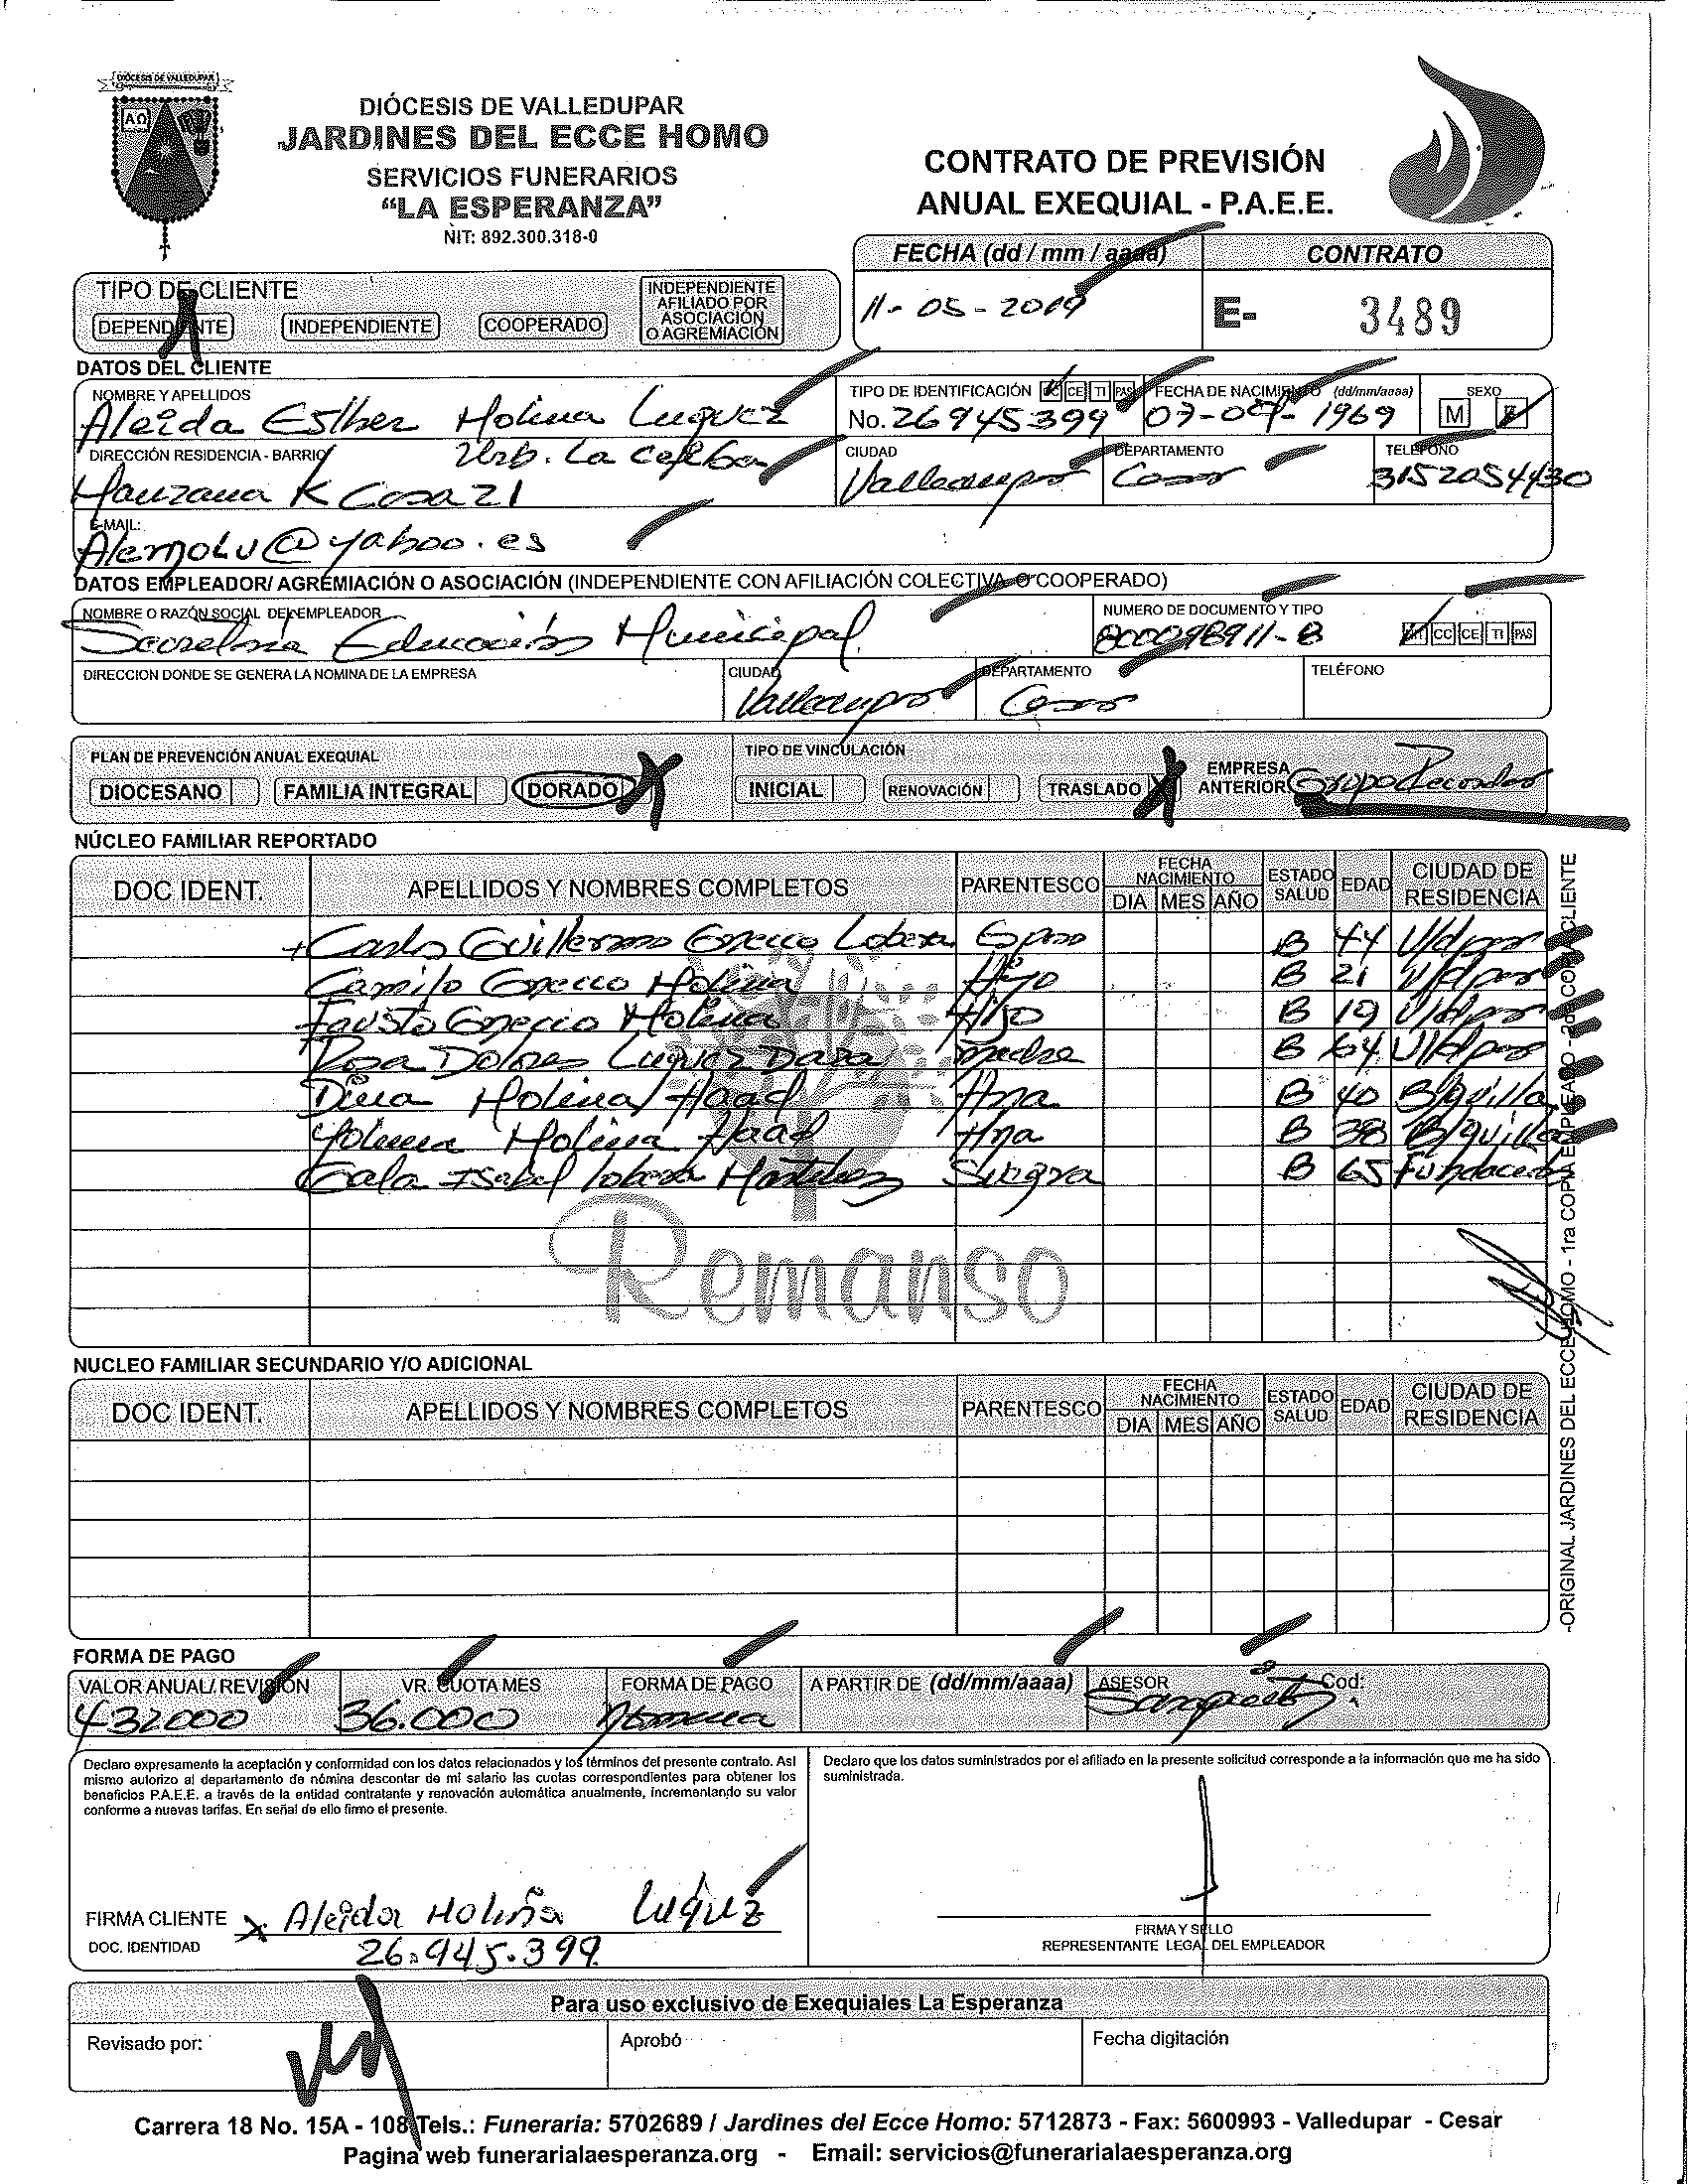 DIÓCESIS DE VALLEDUPAR
DIÓCESIS DE VALLEDUPAR
JARDINES DEL ECCE HOMO
SERVICIOS FUNERARIOS
"LA ESPERANZA"
NIT: 892.300.318-0
CONTRATO DE PREVISIÓN
ANUAL EXEQUIAL - P.A.E.E.
FECHA (dd / mm / aaaa) CONTRATO
11-05-2019 E- 3489
TIPO DE CLIENTE
DEPENDIENTE INDEPENDIENTE COOPERADO INDEPENDIENTE AFILIADO POR ASOCIACIÓN O AGREMIACIÓN
DATOS DEL CLIENTE
NOMBRE Y APELLIDOS TIPO DE IDENTIFICACIÓN CE TI PAS FECHA DE NACIMIENTO (dd/mm/aaaa) SEXO
Aleida Esther Molina Luquez No. 26945399 07-07-1969 M F
DIRECCIÓN RESIDENCIA - BARRIO CIUDAD DEPARTAMENTO TELEFONO
Urb. La Ceiba
Manzana K Casa 21 Valledupar Cesar 3152054430
E-MAIL:
Alemolu@yahoo.es
DATOS EMPLEADOR/ AGREMIACIÓN O ASOCIACIÓN (INDEPENDIENTE CON AFILIACIÓN COLECTIVA O COOPERADO)
NOMBRE O RAZÓN SOCIAL DEL EMPLEADOR NUMERO DE DOCUMENTO Y TIPO
Secretaria Educación Municipal 800098911-8 NIT CC CE TI PAS
DIRECCION DONDE SE GENERA LA NOMINA DE LA EMPRESA CIUDAD DEPARTAMENTO TELÉFONO
Valledupar Cesar
PLAN DE PREVENCIÓN ANUAL EXEQUIAL TIPO DE VINCULACIÓN
DIOCESANO FAMILIA INTEGRAL DORADO X INICIAL RENOVACIÓN TRASLADO X EMPRESA ANTERIOR Grupo Recordar
NÚCLEO FAMILIAR REPORTADO
DOC IDENT. APELLIDOS Y NOMBRES COMPLETOS PARENTESCO FECHA NACIMIENTO DIA MES AÑO ESTADO SALUD EDAD CIUDAD DE RESIDENCIA
Carlos Guillermo Gnecco Lobera Esposo B 44 V/dpar
Camilo Gnecco Molina Hijo B 21 V/dpar
Fausto Gnecco Molina Hijo B 19 V/dpar
Rosa Dolores Luquez Daza madre B 64 V/dpar
Dina Molina Haad Hna B 40 B/quilla
Yolima Molina Haad Hna B 38 B/quilla
Gala Isabel Lobera Martinez Suegra B 65 Fundación
Remanso
NUCLEO FAMILIAR SECUNDARIO Y/O ADICIONAL
DOC IDENT. APELLIDOS Y NOMBRES COMPLETOS PARENTESCO FECHA NACIMIENTO DIA MES AÑO ESTADO SALUD EDAD CIUDAD DE RESIDENCIA
-ORIGINAL JARDINES DEL ECCE HOMO - 1ra COPIA EMPLEADO - 2da COPIA CLIENTE
FORMA DE PAGO
VALOR ANUAL/ REVISIÓN VR. CUOTA MES FORMA DE PAGO A PARTIR DE (dd/mm/aaaa) ASESOR Cod:
432000 36.000 Nomina
Declaro expresamente la aceptación y conformidad con los datos relacionados y los términos del presente contrato. Asi
mismo autorizo al departamento de nómina descontar de mi salario las cuotas correspondientes para obtener los
beneficios P.A.E.E. a través de la entidad contratante y renovación automática anualmente, incrementando su valor
conforme a nuevas tarifas. En señal de ello firmo el presente.
Declaro que los datos suministrados por el afiliado en la presente solicitud corresponde a la información que me ha sido
suministrada.
FIRMA CLIENTE x Aleida Molina Luquéz
DOC. IDENTIDAD 26.945.399
FIRMA Y SELLO
REPRESENTANTE LEGAL DEL EMPLEADOR
Para uso exclusivo de Exequiales La Esperanza
Revisado por: Aprobó Fecha digitación
Carrera 18 No. 15A - 108 Tels.: Funeraria: 5702689 / Jardines del Ecce Homo: 5712873 - Fax: 5600993 - Valledupar - Cesar
Pagina web funerarialaesperanza.org - Email: servicios@funerarialaesperanza.org